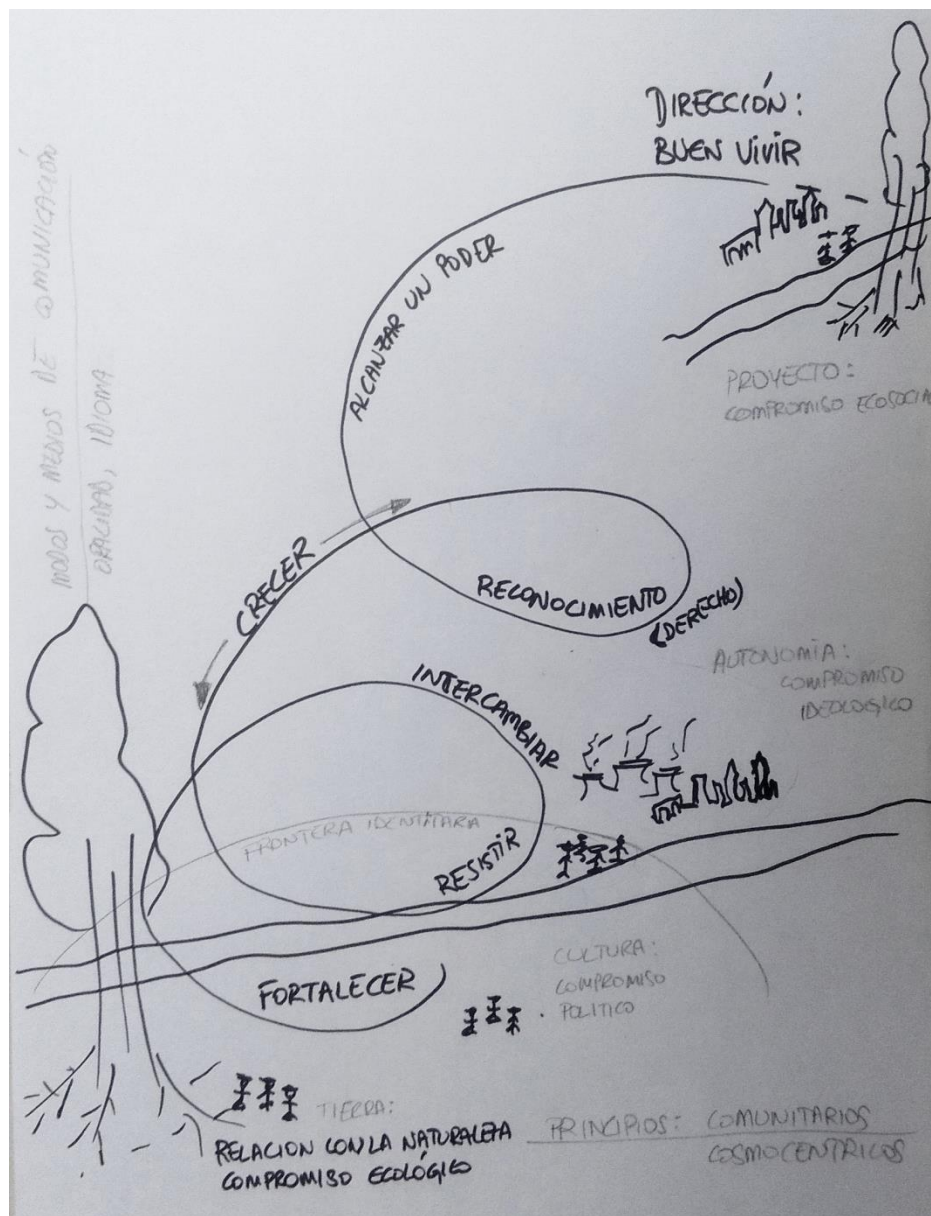 DIRECCIÓN:
BUEN VIVIR
MODOS Y MEDIOS DE COMUNICACIÓN
ORALIDAD, IDIOMA
ALCANZAR UN PODER
PROYECTO:
COMPROMISO ECOSOCIA
CRECER
RECONOCIMIENTO
(DERECHO)
AUTONOMÍA:
COMPROMISO
IDEOLOGICO
INTERCAMBIAR
FRONTERA IDENTITARIA
RESISTIR
CULTURA:
COMPROMISO
POLITICO
FORTALECER
TIERRA:
RELACION CON LA NATURALEZA
COMPROMISO ECOLÓGICO
PRINCIPIOS: COMUNITARIOS
COSMOCENTRICOS